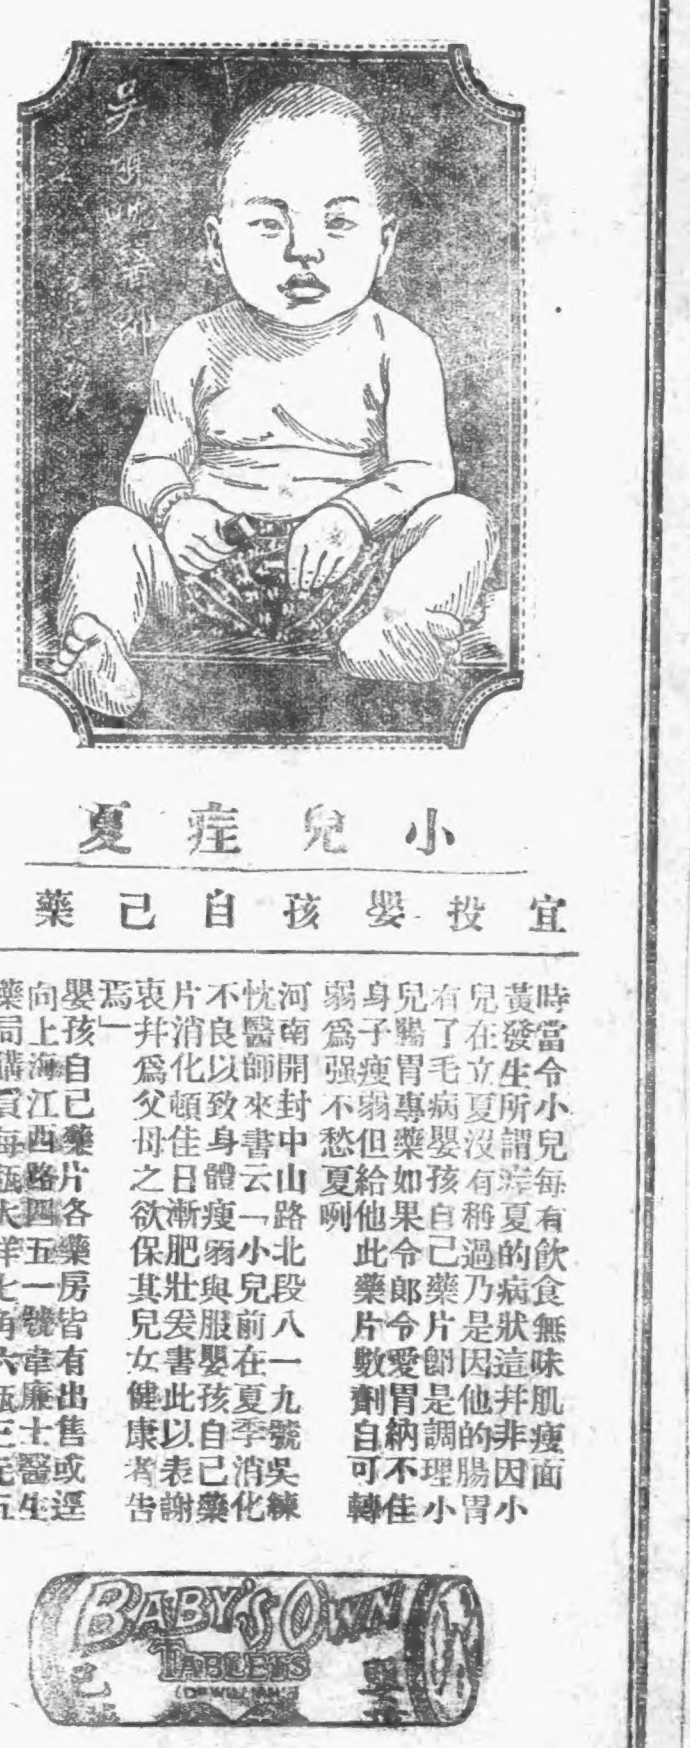 吳
小兒疰夏
宜投嬰孩自己藥
時當令小兒每有飲食無味肌瘦面
黃發生所謂疰夏的病狀這幷非因小
兒在立夏沒有稱過乃是因他的腸胃
有了毛病嬰孩自己藥片卽是調理小
兒腸胃專藥如果令郎令愛胃納不佳
身子瘦弱但給他此藥片數劑自可轉
弱爲强不愁夏咧
河南開封中山路北段八一九號吳練
忱醫師來書云「小兒前在夏季消化
不良以致身體瘦弱與服嬰孩自己藥
片消化頓佳日漸肥壯爰書此以表謝
衷幷爲父母之欲保其兒女健康者告
焉」
嬰孩自己藥片各藥房皆有出售或逕
向上海江西路四五一號韋廉士醫生
藥局購買每瓶大洋七角六瓶三元五
BABY'S OWN
TABLETS
(DR WILLIAMS')